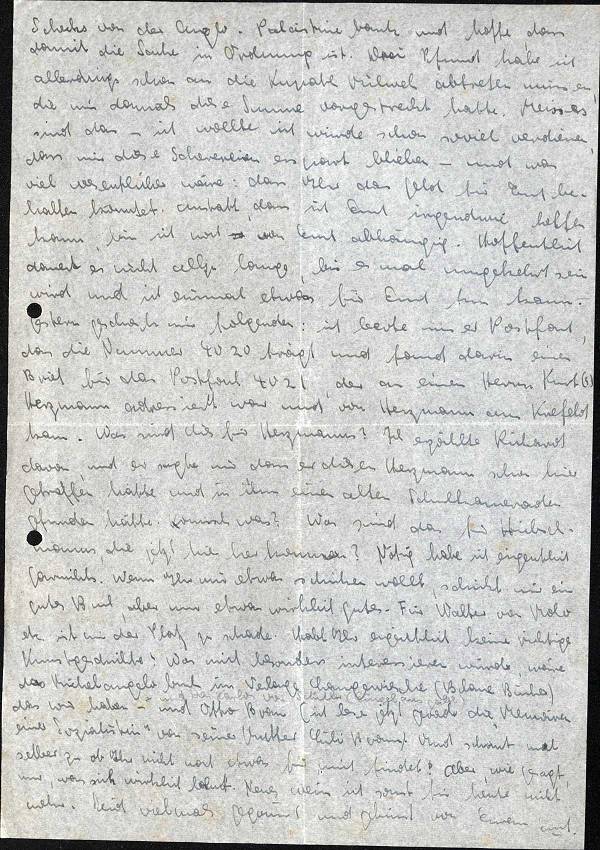 Schecks von der Anglo-Palästine bank und hoffe dass
damit die Sache in Ordnung ist. Drei Pfund habe ich
allerdings schon an die Kupath Milweh abtreten müssen,
die mir damals diese Summe vorgestreckt hatte.
sind das - ich wollte ich würde schon soviel verdienen,
dass mir diese Scherereien erspart blieben - und was
viel wesentlicher wäre: dass Ihr das Geld für Euch be-
halten könntet. Anstatt dass ich Euch irgendwie helfen
kann, bin ich noch von Euch abhängig. Hoffentlich
dauert es nicht allzu lange, bis es mal umgekehrt sein
wird und ich einmal etwas für Euch tun kann.
Gestern geschah mir folgendes: ich leerte unser Postfach,
das die Nummer 4020 trägt und fand darin einen
Brief für das Postfach 4021, der an einen Herrn Kurt (!)
Herzmann adressiert war und von Herzmann aus Krefeld
kam. Was sind das für Herzmanns? Ich erzählte Richard
davon und er sagte mir dass er diesen Herzmann schon hier
getroffen hätte und in ihm einen alten Schulkameraden
gefunden hätte. Komisch was? Was sind das für Hirsch-
manns, die jetzt hier her kommen? Nötig habe ich eigentlich
garnichts. Wenn Ihr mir etwas schicken wollt, schickt mir ein
gutes Buch, aber nur etwas wirklich gutes. Für Walter von Molo
etc ist mir der Platz zu schade. Habt Ihr eigentlich keine richtige
Kunstgeschichte? Was mich besonders interessieren würde wäre
das Michelangelo buch im Verlage Langewiesche (Blaue Bücher)
das wir haben - und Otto Braun (ich lese jetzt gerade die Memoiren
einer Sozialistin" von seiner Mutter Lili Braun. Und schaut mal
selber zu ob Ihr nicht noch etwas für mich findet! Aber, wie gesagt,
nur, was sich wirklich lohnt. Neues weiss ich sonst für heute nicht
mehr. Seid vielmals gegrüsst und geküsst von Eurem